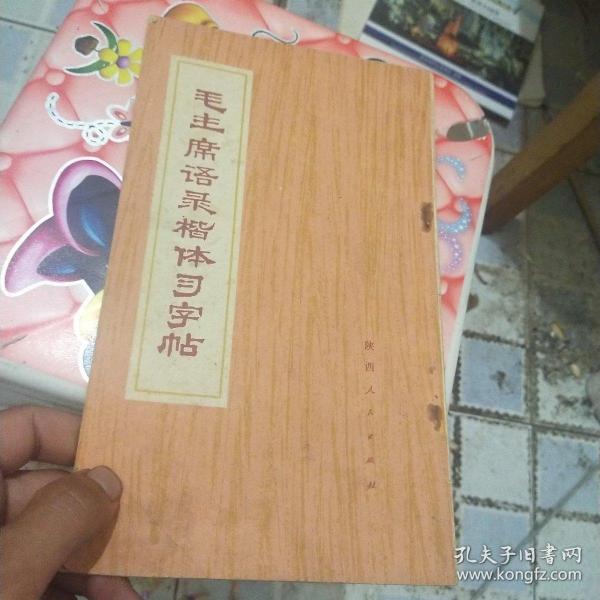 毛主席语录楷体习字帖
陕西人民出版社
孔夫子旧書网
www.kongfz.com